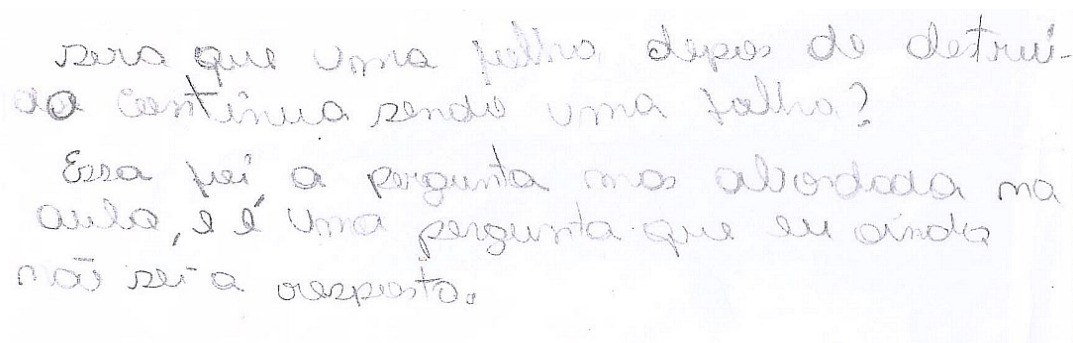 sera que uma folha depois de detrui-
da continua sendo uma folha?
Essa foi a pergunta mas abordada na
aula, e é uma pergunta que eu ainda
não sei a resposta.